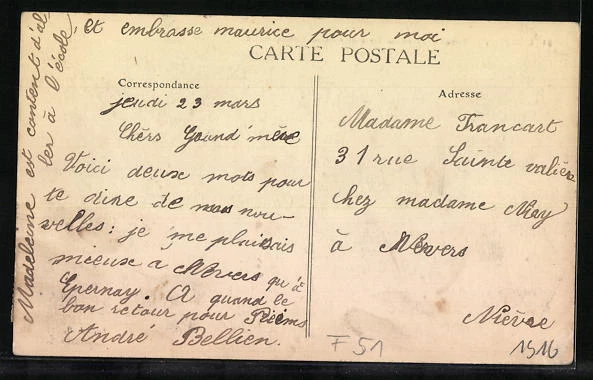 Et embrasse maurice pour moi
CARTE POSTALE
Correspondance
jeudi 23 mars
Chèrs Grand'mère
Voici deux mots pour
te dire de nos nou-
velles: je me plaisais
mieux a Nevers qu'à
Epernay. A quand le
bon retour pour Reims
André Bellien.
Madeleine est content d'al
ler à l'école.
Adresse
Madame Francart
31 rue Sainte valière
chez madame May
à Nevers
Nièvre
F51
1916